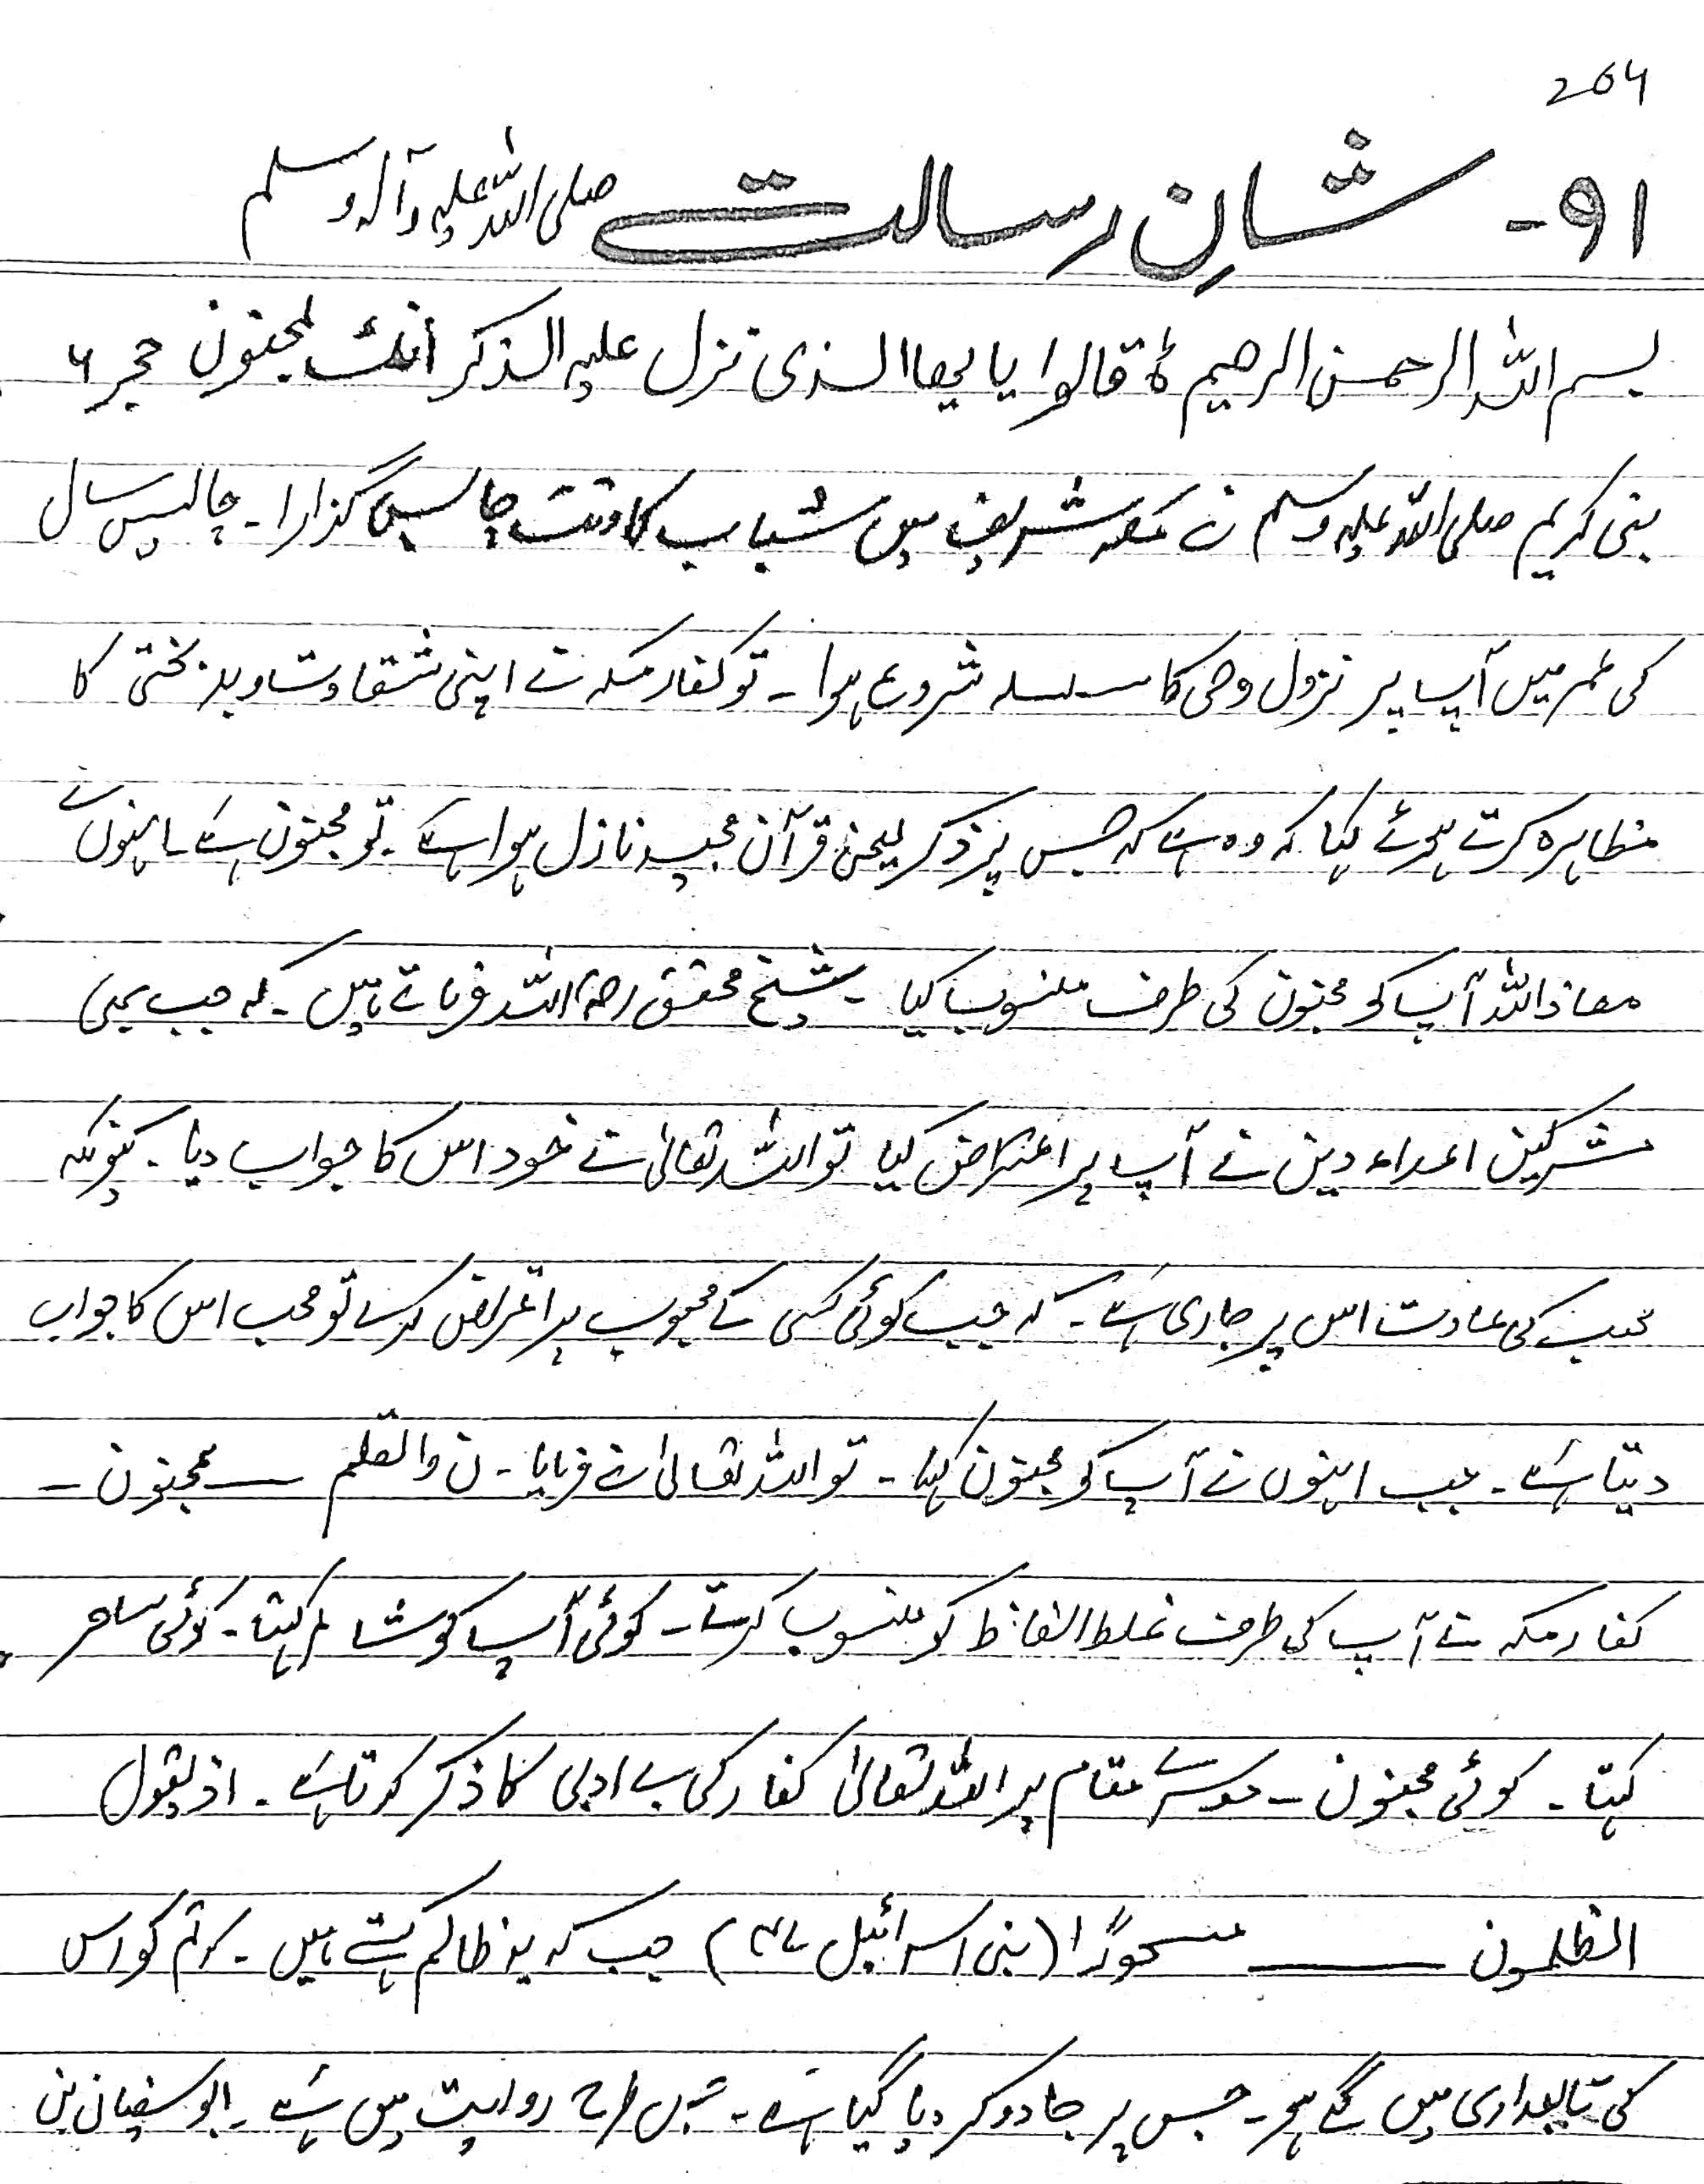 264
۹۱- شانِ رسالت صلی اللہ علیہ وآلہ وسلم
بسم اللہ الرحمن الرحیم قالوا یا یھا الذی نزل علیہ الذکر انک لمجنون حجر ۶
بنی کریم صلی اللہ علیہ وسلم نے مکہ شریف میں شباب کا وقت گذارا۔ چالیس سال
کی عمر میں آپ پر نزول وحی کا سلسلہ شروع ہوا۔ تو کفار مکہ نے اپنی شقاوت و بدبختی کا
مظاہرہ کرتے ہوئے کہا کہ وہ ہے کہ جس پر ذکر یعنی قرآن مجید نازل ہوا ہے۔ تو مجنون ہے۔ انہوں نے
معاذ اللہ آپ کو مجنون کی طرف منسوب کیا۔ شیخ محقق رحمۃ اللہ فرماتے ہیں۔ کہ جب بھی
مشرکین اعداء دین نے آپ پر اعتراض کیا تو اللہ تعالیٰ نے خود اس کا جواب دیا۔ کیونکہ
محب کی عادت اس پر جاری ہے۔ کہ جب کوئی کسی کے محبوب پر اعتراض کرے تو محب اس کا جواب
دیتا ہے۔ جب انہوں نے آپ کو مجنون کہا۔ تو اللہ تعالیٰ نے فرمایا۔ ن والقلم ــــ مجنون۔
کفار مکہ نے آپ کی طرف غلط الفاظ کو منسوب کرتے۔ کوئی آپ کو شاعر کہتا۔ کوئی ساحر
کہتا۔ کوئی مجنون۔ دوسرے مقام پر اللہ تعالیٰ کفار کی بے ادبی کا ذکر کرتا ہے۔ اذ یقول
الظلمون ـــــــ مسحورًا (بنی اسرائیل ۴۷) جب کہ یہ ظالم کہتے ہیں۔ کہ تم کو اس
کی تابعداری میں لگے ہو۔ جس پر جادو کر دیا گیا ہے۔ جس طرح روایت میں ہے۔ ابوسفیان بن